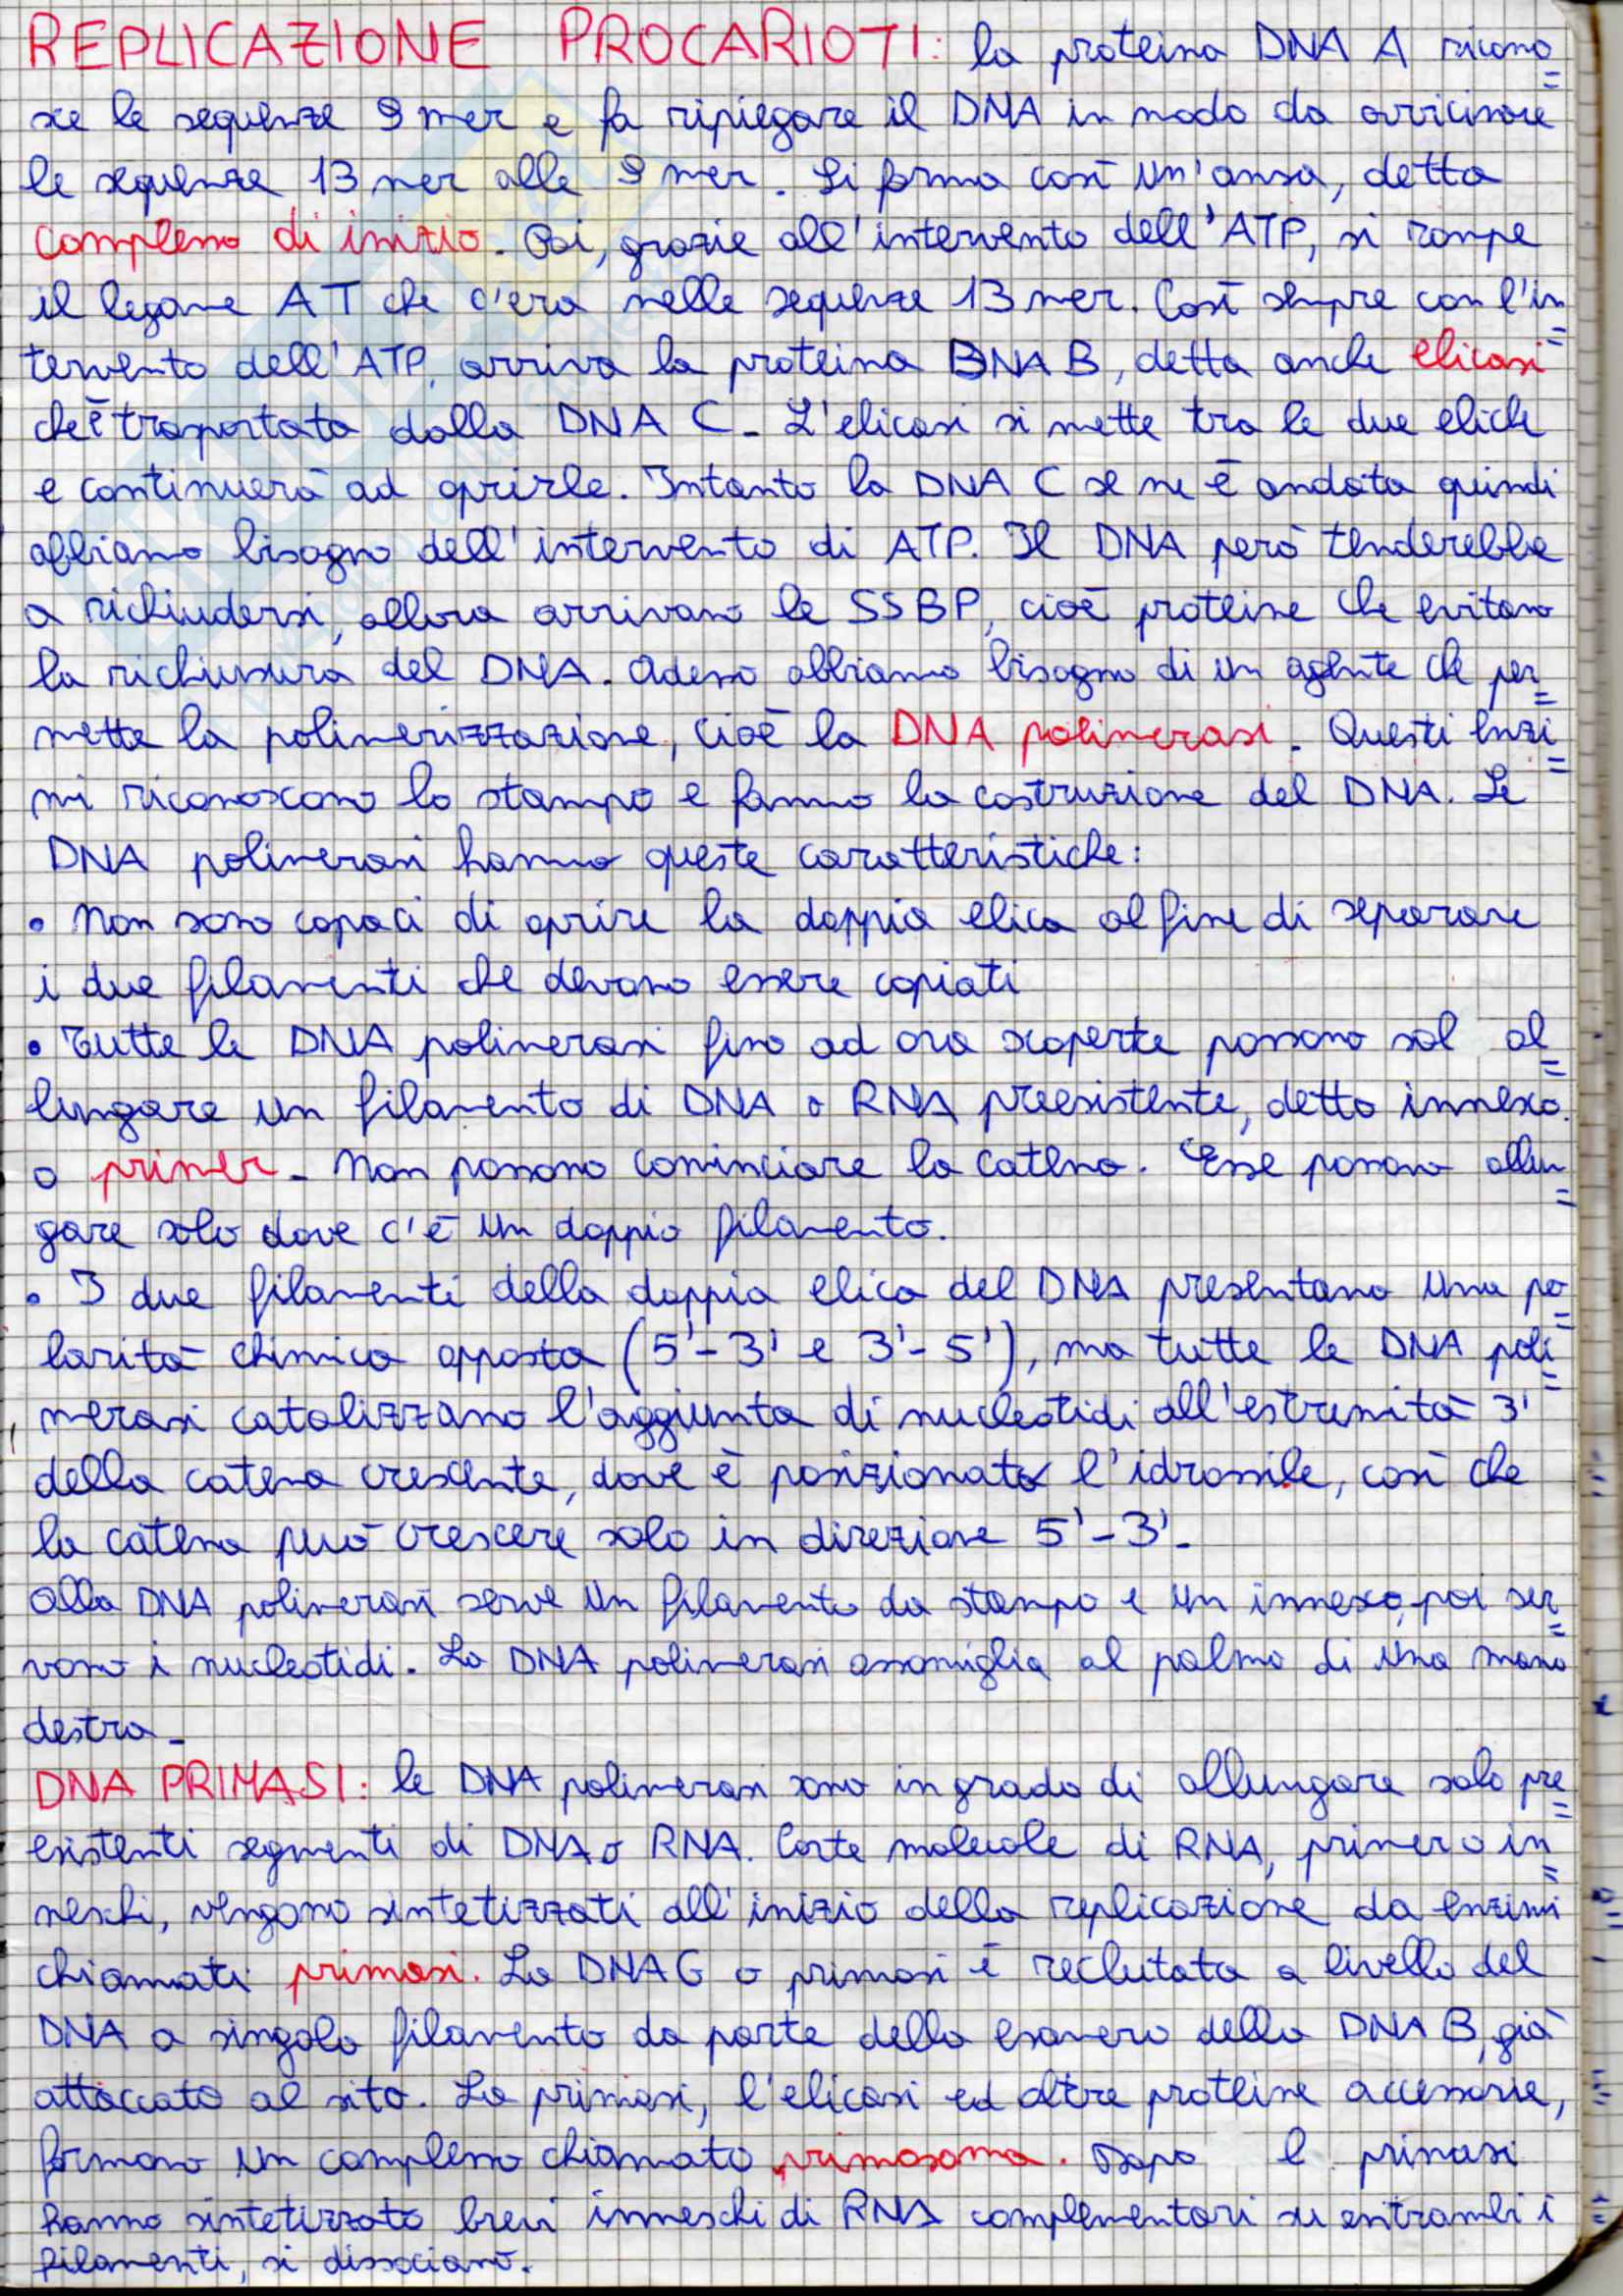 REPLICAZIONE PROCARIOTI: la proteina DNA A ricono=
sce le sequenze 9 mer e fa ripiegare il DNA in modo da avvicinare
le sequenze 13 mer alle 9 mer. Si forma così un'ansa, detta
complesso di inizio. Poi, grazie all'intervento dell'ATP, si rompe
il legame AT che c'era nelle sequenze 13 mer. Così sempre con l'in=
tervento dell'ATP, arriva la proteina DNA B, detta anche elicasi
che è trasportata dalla DNA C. L'elicasi si mette tra le due eliche
e continuerà ad aprirle. Intanto la DNA C se ne è andata quindi
abbiamo bisogno dell'intervento di ATP. Il DNA però tenderebbe
a richiudersi, allora arrivano le SSBP, cioè proteine che evitano
la richiusura del DNA. Adesso abbiamo bisogno di un agente che per=
mette la polimerizzazione, cioè la DNA polimerasi. Questi enzi=
mi riconoscono lo stampo e fanno la costruzione del DNA. Le
DNA polimerasi hanno queste caratteristiche:
• Non sono capaci di aprire la doppia elica al fine di separare
i due filamenti che devono essere copiati
• Tutte le DNA polimerasi fino ad ora scoperte possono sol al=
lungare un filamento di DNA o RNA preesistente, detto innesco
o primer. Non possono cominciare la catena. Esse possono allun=
gare solo dove c'è un doppio filamento.
• I due filamenti della doppia elica del DNA presentano una po=
larità chimica opposta (5'-3' e 3'-5'), ma tutte le DNA poli=
merasi catalizzano l'aggiunta di nucleotidi all'estremità 3'
della catena crescente, dove è posizionato l'idrossile, così che
la catena può crescere solo in direzione 5'-3'.
Alla DNA polimerasi serve un filamento da stampo e un innesco, poi ser=
vono i nucleotidi. La DNA polimerasi assomiglia al palmo di una mano
destra.
DNA PRIMASI: le DNA polimerasi sono in grado di allungare solo pre=
esistenti segmenti di DNA o RNA. Corte molecole di RNA, primer o in=
neschi, vengono sintetizzati all'inizio della replicazione da enzimi
chiamati primasi. La DNA G o primasi è reclutata a livello del
DNA a singolo filamento da parte dello esamero della DNA B, già
attaccato al sito. La primasi, l'elicasi ed altre proteine accessorie,
formano un complesso chiamato primosoma. Dopo l primasi
hanno sintetizzato brevi inneschi di RNA complementari su entrambi i
filamenti, si dissociano.